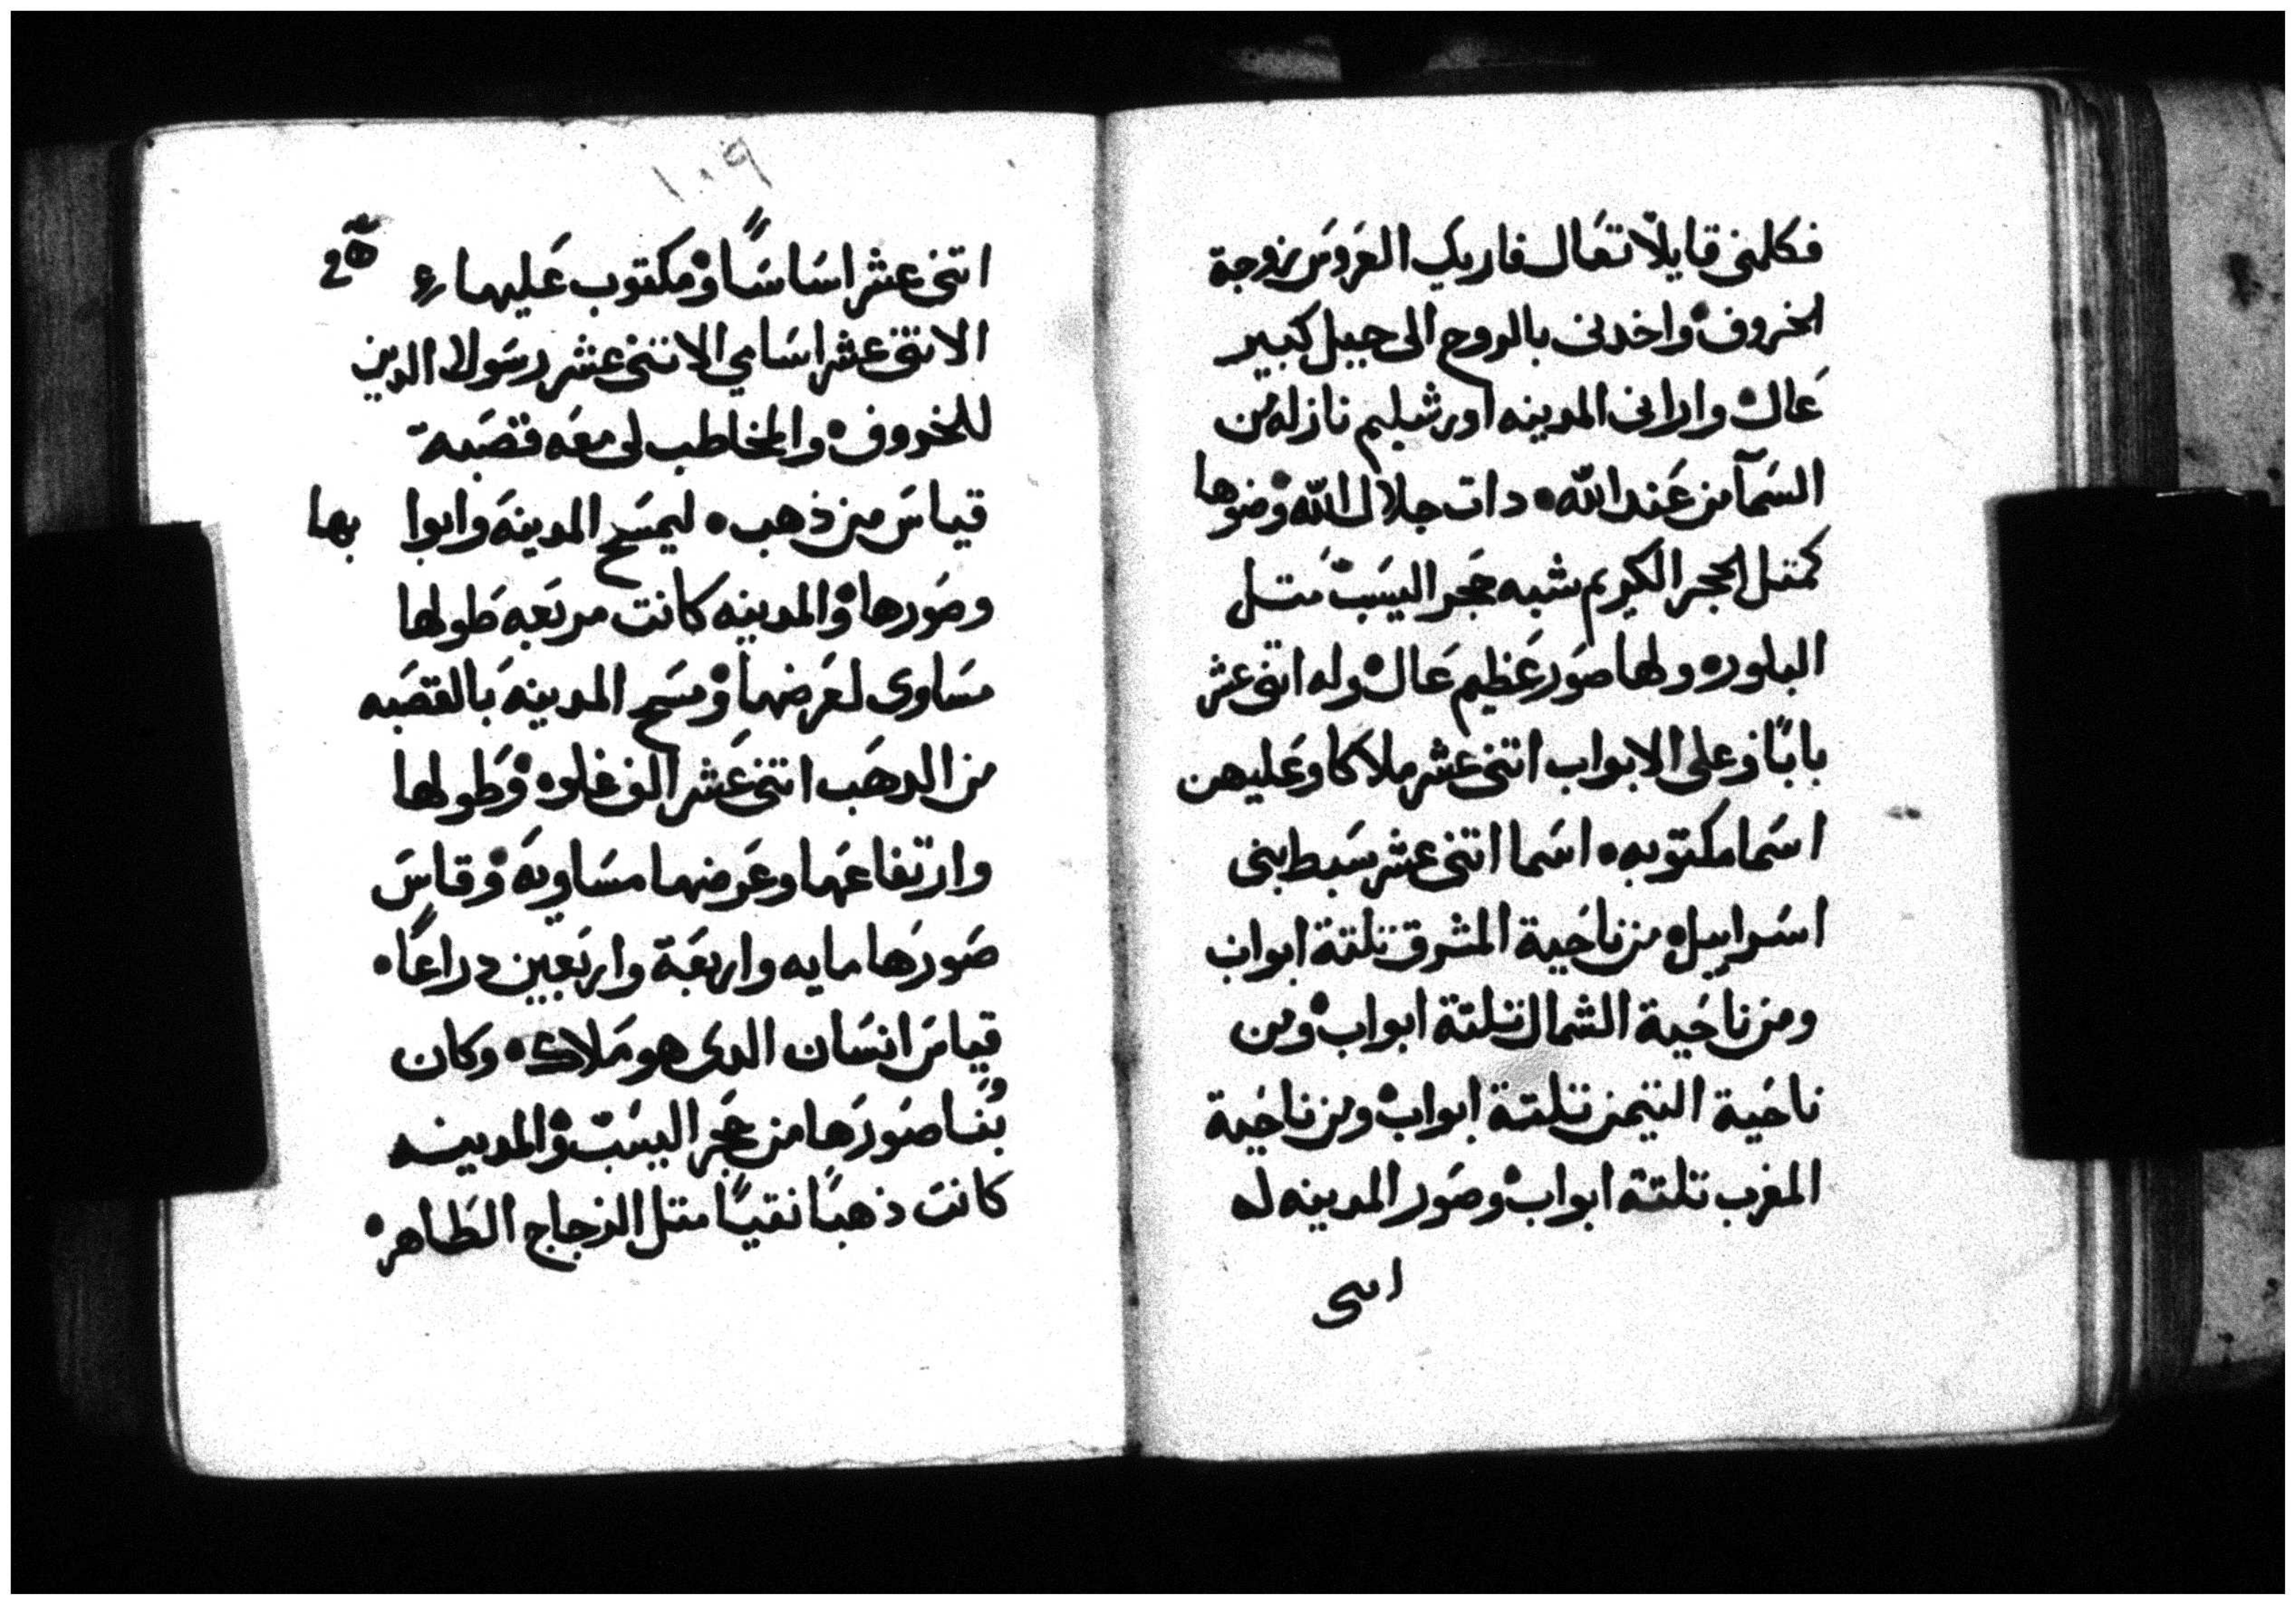 فكلمنى قايلا تعال فاريك العروس زوجة
الخروف واخدنى بالروح الى جبل كبير
عال وارانى المدينه اورشليم نازله من
السمآ من عند الله دات جلال الله وضوها
كمتل الحجر الكريم شبه حجر اليسب متل
البلوره ولها صور عظيم عال وله اتنى عشر
بابًا وعلى الابواب اتنى عشر ملاكا وعليهن
اسما مكتوبه اسما اتنى عشر سبط بنى
اسراييل من ناحية المشرق تلتة ابواب
ومن ناحية الشمال تلتة ابواب ومن
ناحية التيمن تلتة ابواب ومن ناحية
المغرب تلتة ابواب وصور المدينه له
اتنى
١٠٩
اتنى عشر اساسًا ومكتوب عليها
الاتنى عشر اسامي الاتنى عشر رسولا الدين
للخروف والمخاطب لى معه قصبة
قياس من ذهب ليمسح المدينة وابوا بها
وصورها والمدينه كانت مربعه طولها
مساوى لعرضها ومسح المدينة بالقصبه
من الدهب اتنى عشر الف غلوه وطولها
وارتفاعها وعرضها مساوية وقاس
صورها مايه واربعة واربعين دراعًا
قياس انسان الدى هو ملاك وكان
بنا صورها من حجر اليسب والمدينه
كانت ذهبًا نقيًا متل الزجاج الطاهر